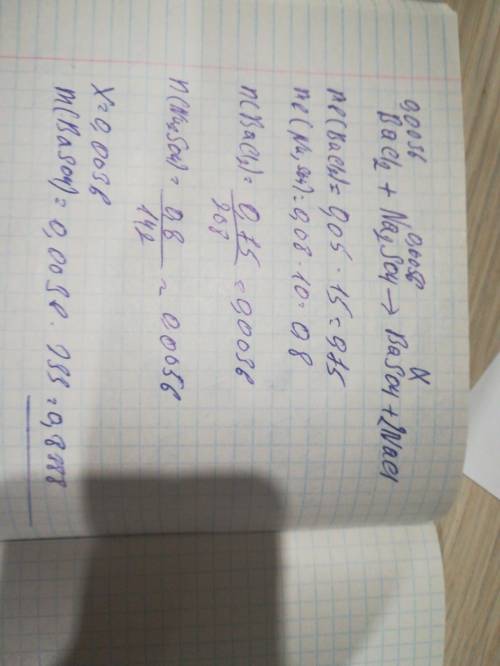 0,0036 0,0056 X
BaCl2 + Na2SO4 → BaSO4 + 2NaCl
m(BaCl2) = 0,05 · 15 = 0,75
m(Na2SO4) = 0,08 · 10 = 0,8
n(BaCl2) = 0,75 / 208 = 0,0036
n(Na2SO4) = 0,8 / 142 = 0,0056
X = 0,0036
m(BaSO4) = 0,0036 · 233 = 0,8388